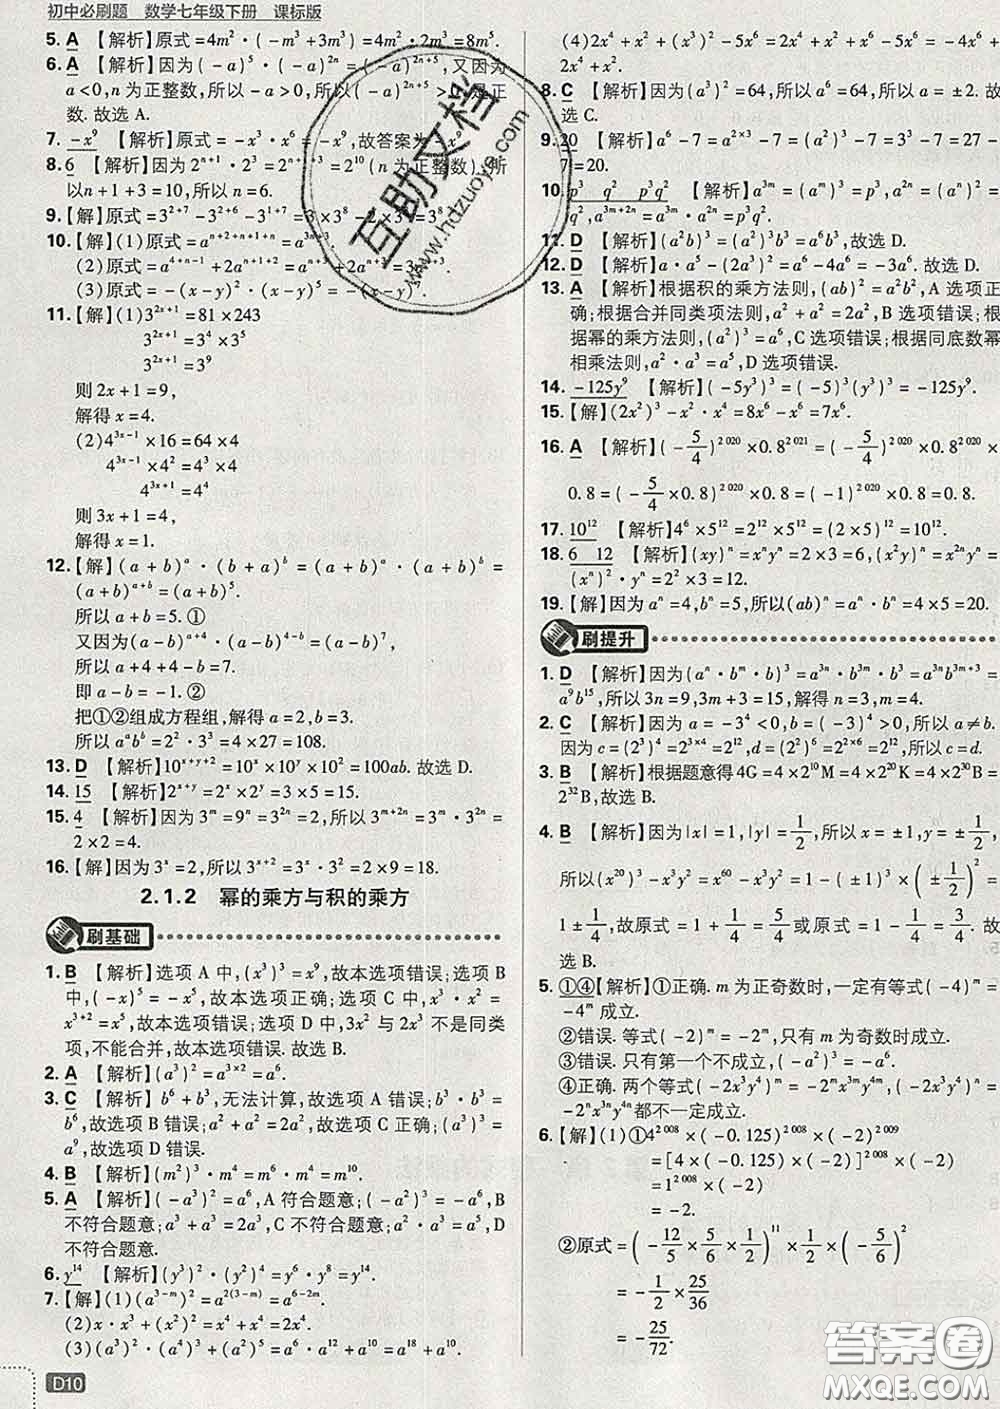 初中必刷题 数学七年级下册 课标版
5. A 【解析】原式=4m²·(-m³+3m³)=4m²·2m³=8m⁵.
6. A 【解析】因为(-a)⁵·(-a)²ⁿ=(-a)²ⁿ⁺⁵,又因为
a<0,n为正整数,所以-a>0,所以(-a)²ⁿ⁺⁵>0,是正
数.故选A.
7. -x⁹ 【解析】原式=-x³·x⁶=-x⁹,故答案为-x⁹.
8. 6 【解析】因为2ⁿ⁺¹·2³=2¹⁰(n为正整数),所
以n+1+3=10,所以n=6.
9.【解】原式=3²⁺⁷-3²⁺⁶-3¹⁺⁷=3×3⁸-2×3⁸=3⁸.
10.【解】(1)原式=aⁿ⁺²⁺ⁿ⁺¹⁺ⁿ=a³ⁿ⁺³.
(2)原式=a⁴⁺ⁿ⁻¹+2aⁿ⁺¹⁺²=aⁿ⁺³+2aⁿ⁺³=3aⁿ⁺³.
(3)原式=-(x-y)²·(x-y)⁵=-(x-y)⁷.
11.【解】(1)3²ˣ⁺¹=81×243
3²ˣ⁺¹=3⁴×3⁵
3²ˣ⁺¹=3⁹
则2x+1=9,
解得x=4.
(2)4³ˣ⁻¹×16=64×4
4³ˣ⁻¹×4²=4³×4
4³ˣ⁺¹=4⁴
则3x+1=4,
解得x=1.
12.【解】(a+b)ᵃ·(b+a)ᵇ=(a+b)ᵃ·(a+b)ᵇ=
(a+b)ᵃ⁺ᵇ=(a+b)⁵.
所以a+b=5.①
又因为(a-b)ᵃ⁺⁴·(a-b)⁴⁻ᵇ=(a-b)⁷.
所以a+4+4-b=7.
即a-b=-1.②
把①②组成方程组,解得a=2,b=3.
所以aᵃbᵇ=2²·3³=4×27=108.
13. D 【解析】10ˣ⁺ʸ⁺²=10ˣ×10ʸ×10²=100ab.故选D.
14. 15 【解析】2ˣ⁺ʸ=2ˣ×2ʸ=3×5=15.
15. 4 【解析】因为3ᵐ=9ⁿ=3²ⁿ=2,所以3ᵐ⁺²ⁿ=3ᵐ·3²ⁿ
=2×2=4.
16.【解】因为3ˣ=2,所以3ˣ⁺²=3ˣ·3²=2×9=18.
2.1.2 幂的乘方与积的乘方
刷基础
1. B 【解析】选项A中,(x³)³=x⁹,故本选项错误;选项B
中,(-x)⁵=-x⁵,故本选项正确;选项C中,x³·x²=
x³⁺²=x⁵,故本选项错误;选项D中,3x²与2x³不是同类
项,不能合并,故本选项错误.故选B.
2. A 【解析】(a³)²=a³ˣ²=a⁶.
3. C 【解析】b⁶+b³,无法计算,故选项A错误;b³·b³=
b⁶,故选项B错误;a²+a²=2a²,故选项C正确;(a³)³=
a⁹,故选项D错误.
4. B 【解析】(m²)³·m⁴=m⁶·m⁴=m¹⁰.
5. A 【解析】(-a³)²=a⁶,A符合题意;(-a²)³=-a⁶,B
不符合题意;a³+a³=2a³,C不符合题意;a²·a³=a⁵,D
不符合题意.
6. y¹⁴ 【解析】(y³)²·(y²)⁴=y⁶·y⁸=y¹⁴.
7.【解】(1)(a³⁻ᵐ)²=a²⁽³⁻ᵐ⁾=a⁶⁻²ᵐ.
(2)x·x³+(x²)²=x⁴+x⁴=2x⁴.
(3)(a³)²·(a³)⁴·(a²)⁵=a⁶·a¹²·a¹⁰=a²⁸.
D10
(4)2x⁴+x²+(x³)²-5x⁶=2x⁴+x²+x⁶-5x⁶=-4x⁶+
2x⁴+x².
8. C 【解析】因为(a³)²=64,所以a⁶=64,所以a=±2.故
选C.
9. 20 【解析】a⁶-7=a²ˣ³-7=(a²)³-7=3³-7=27-
7=20.
10. p³ q² p³q² 【解析】a³ᵐ=(aᵐ)³=p³,a²ⁿ=(aⁿ)²=
q²,a³ᵐ⁺²ⁿ=a³ᵐ·a²ⁿ=p³q².
11. D 【解析】(a²b)³=(a²)³b³=a⁶b³,故选D.
12. D 【解析】a·a⁵-(2a³)²=a⁶-4a⁶=-3a⁶.故选D.
13. A 【解析】根据积的乘方法则,(ab)²=a²b²,A选项正
确;根据合并同类项法则,a²+a²=2a²,B选项错误;根
据幂的乘方法则,(a²)³=a⁶,C选项错误;根据同底数幂
相乘法则,a²·a³=a⁵,D选项错误.
14. -125y⁹ 【解析】(-5y³)³=(-5)³(y³)³=-125y⁹.
15.【解】(2x²)³-x²·x⁴=8x⁶-x⁶=7x⁶.
16. A 【解析】(-5/4)²⁰²⁰×0.8²⁰²¹=(-5/4)²⁰²⁰×0.8²⁰²⁰×
0.8=(-5/4×0.8)²⁰²⁰×0.8=(-1)²⁰²⁰×0.8=0.8.
17. 10¹² 【解析】4⁶×5¹²=2¹²×5¹²=(2×5)¹²=10¹².
18. 6 12 【解析】(xy)ⁿ=xⁿyⁿ=2×3=6,(x²y)ⁿ=x²ⁿyⁿ=
(xⁿ)²·yⁿ=2²×3=12.
19.【解】因为aⁿ=4,bⁿ=5,所以(ab)ⁿ=aⁿ·bⁿ=4×5=20.
刷提升
1. D 【解析】因为(aⁿ·bᵐ·b)³=a³ⁿ·b³ᵐ·b³=a³ⁿb³ᵐ⁺³=
a⁹b¹⁵,所以3n=9,3m+3=15,解得n=3,m=4.
2. C 【解析】因为a=-3⁴<0,b=(-3)⁴>0,所以a≠b.
因为c=(2³)⁴=2³ˣ⁴=2¹²,d=(2²)⁶=2²ˣ⁶=2¹²,所以c=d.
3. B 【解析】根据题意得4G=4×2¹⁰M=4×2²⁰K=4×2³⁰B=
2³²B,故选B.
4. B 【解析】因为|x|=1,|y|=1/2,所以x=±1,y=±1/2.
所以(x²⁰)³-x³y²=x⁶⁰-x³y²=1-(±1)³×(±1/2)²=
1±1/4,故原式=1+1/4=5/4或原式=1-1/4=3/4.故
选B.
5. ①④【解析】①正确.m为正奇数时,一定有等式(-4)ᵐ=
-4ᵐ成立.
②错误.等式(-2)ᵐ=-2ᵐ,只有m为奇数时成立.
③错误.只有第一个不成立,(-a²)³=-a⁶.
④正确.两个等式(-2x³y⁴)ᵐ=-2ᵐx³ᵐy⁴ᵐ,(-2x³y⁴)ⁿ=
-2ⁿx³ⁿy⁴ⁿ都不一定成立.
6.【解】(1)①4²⁰⁰⁸×(-0.125)²⁰⁰⁸×(-2)²⁰⁰⁹
=[4×(-0.125)×(-2)]²⁰⁰⁸×(-2)
=1²⁰⁰⁸×(-2)
=-2.
②原式=(-12/5×5/6×1/2)¹¹×1/2×(-5/6)²
=-1/2×25/36
=-25/72.
互助文档
www.hdzuoye.com
答案圈
MXQE.COM